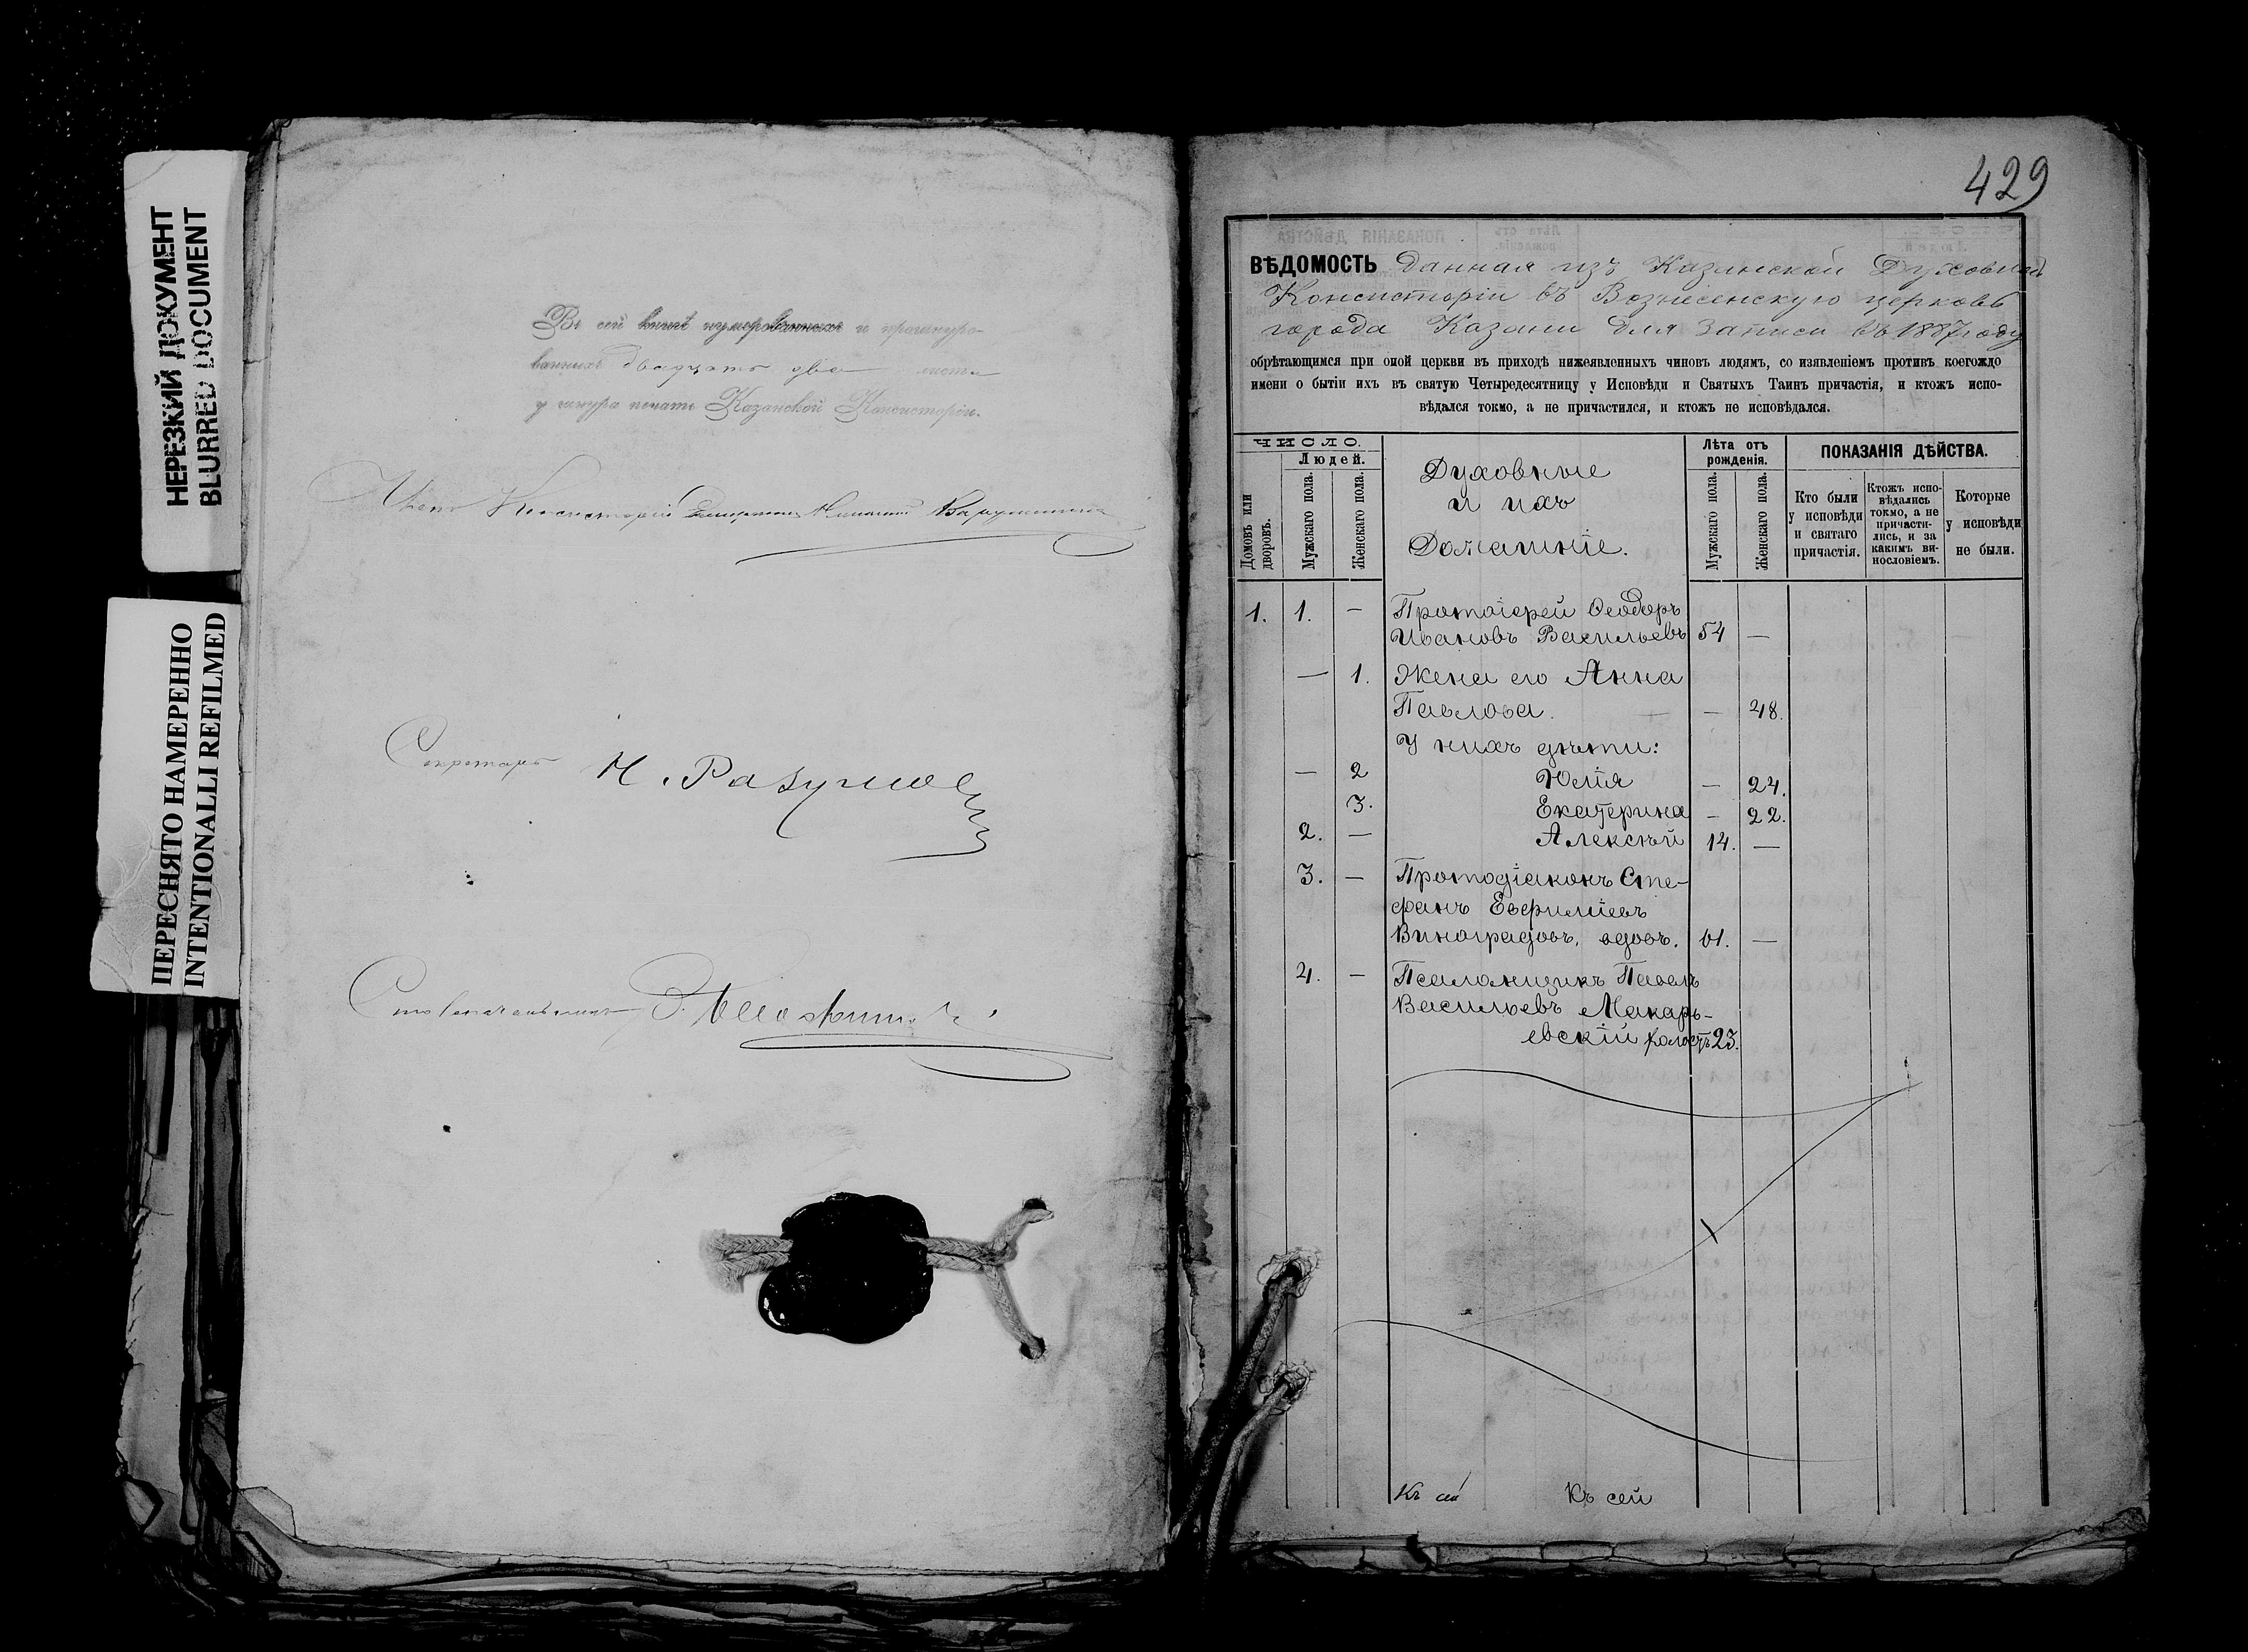 НЕРЕЗКИЙ ДОКУМЕНТ
BLURRED DOCUMENT
ПЕРЕСНЯТО НАМЕРЕННО
INTENTIONALLI REFILMED
Въ сей книгѣ нумерованныхъ и прошнуро-
ванныхъ двадцать два листа
у шнура печать Казанской Консисторіи.
Членъ Консисторіи
Секретарь Н. Разумов
Столоначальникъ
429
ВѢДОМОСТЬ данная изъ Казанской Духовной
Консисторіи въ Вознесенскую церковь
города Казани для записи въ 1887 году
обрѣтающимся при оной церкви въ приходѣ нижеявленныхъ чиновъ людямъ, со изявленіемъ противъ коегождо
имени о бытіи ихъ въ святую Четыредесятницу у Исповѣди и Святыхъ Таинъ причастія, и ктожъ испо-
вѣдался токмо, а не причастился, и ктожъ не исповѣдался.
ЧИСЛО.
Людей.
Домовъ или дворовъ.
Мужскаго пола.
Женскаго пола.
Духовные
и ихъ
Домашніе.
Лѣта отъ
рожденія.
Мужскаго пола.
Женскаго пола.
ПОКАЗАНІЯ ДѢЙСТВА.
Кто были
у исповѣди
и святаго
причастія.
Ктожъ испо-
вѣдались
токмо, а не
причасти-
лись, и за
какимъ ви-
нословіемъ.
Которые
у исповѣди
не были.
1. 1. — Протоіерей Ѳеодоръ
Ивановъ Васильевъ 54 —
— 1. Жена его Анна
Павлова. — — 48.
У нихъ дѣти:
— 2 Юлія — 24.
3. Екатерина — 22.
2. — Алексѣй 14. —
3. — Протодіаконъ Сте-
фанъ Евфиміевъ
Виноградовъ, вдовъ. 61. —
4. — Псаломщикъ Павелъ
Васильевъ Макарь-
евскій холостъ 23.
Къ сей Къ сей